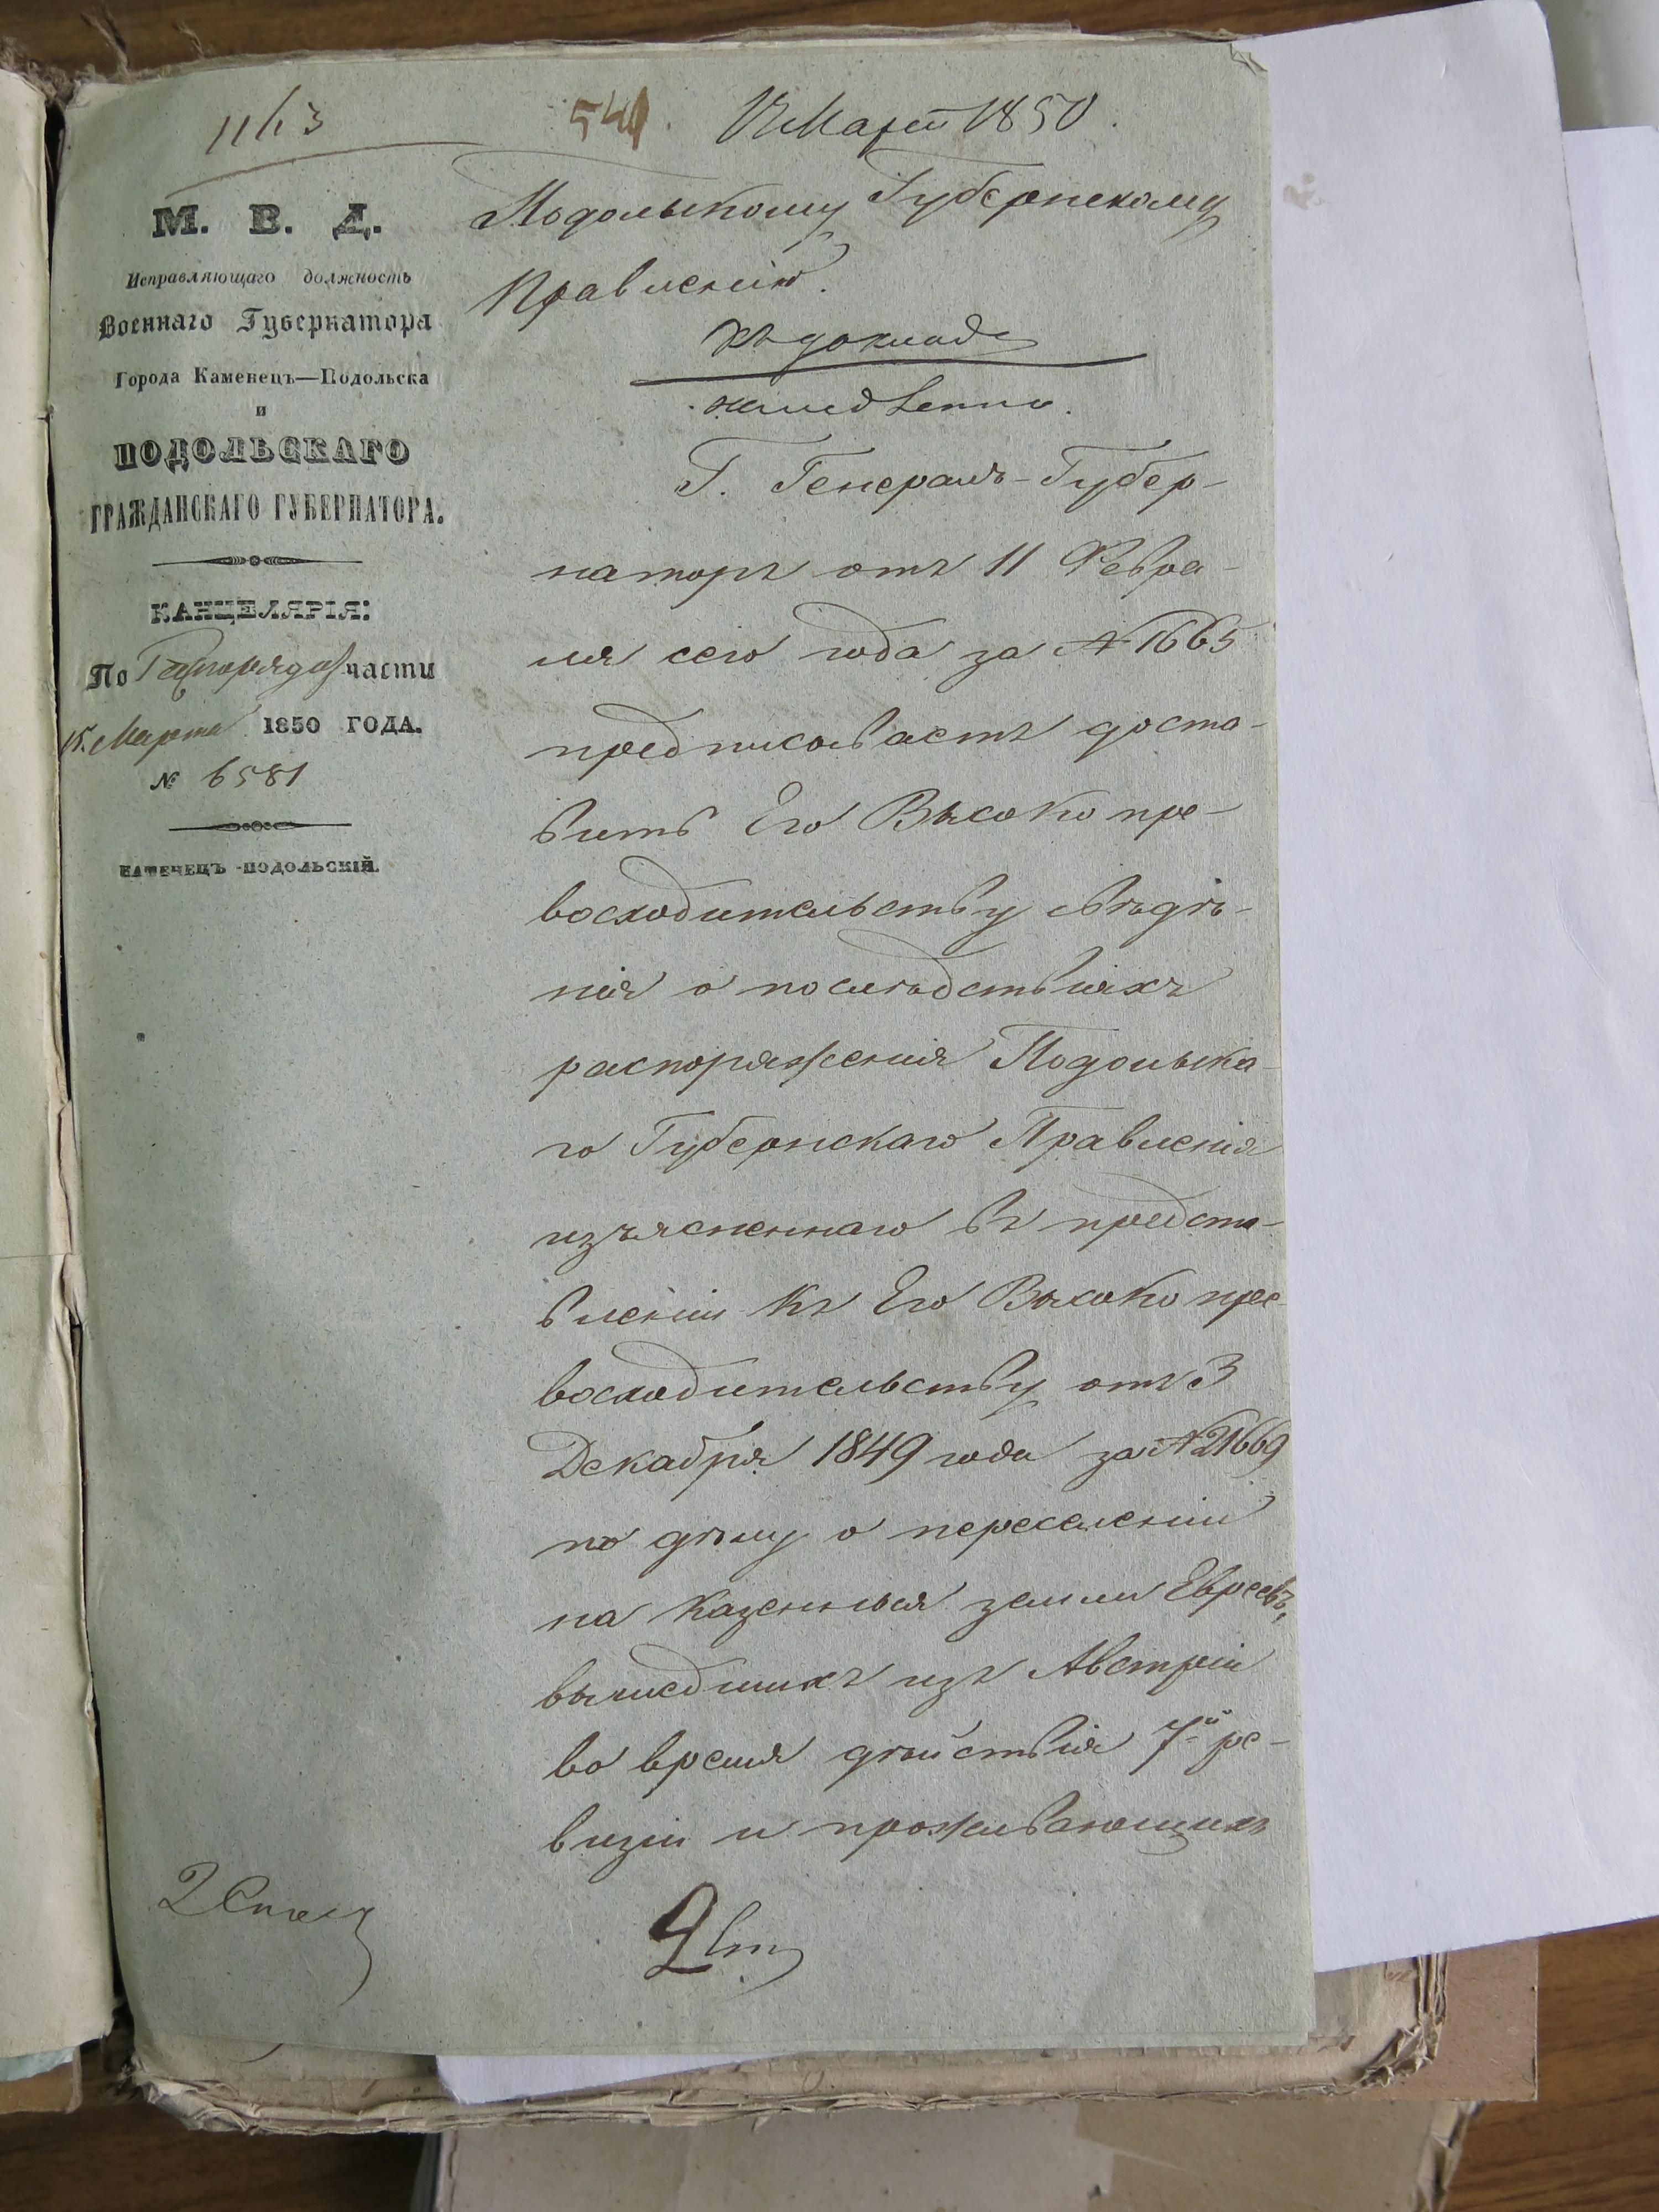 541. 17 Марта 1850.
М. В. Д.
Исправляющаго должность
Военнаго Губернатора
Города Каменецъ—Подольска
и
ПОДОЛЬСКАГО
ГРАЖДАНСКАГО ГУБЕРНАТОРА.
КАНЦЕЛЯРІЯ:
По части
15. Марта 1850 ГОДА.
№ 6581
КАМЕНЕЦЪ-ПОДОЛЬСКІЙ.
Подольскому Губернскому
Правленію.
къ докладу
немедленно.
Г. Генералъ-Губер-
наторъ отъ 11 Февра-
ля сего года за № 1665
предписываетъ доста-
вить Его Высокопре-
восходительству свѣдѣ-
нія о послѣдствіяхъ
распоряженія Подольска-
го Губернскаго Правленія
изъясненнаго въ предста-
вленіи къ Его Высокопре-
восходительству отъ 3
Декабря 1849 года за № 21669
по дѣлу о переселеніи
на казенныя земли Евреевъ,
вышедшихъ изъ Австріи
во время дѣйствія 7й ре-
визіи и проживающихъ